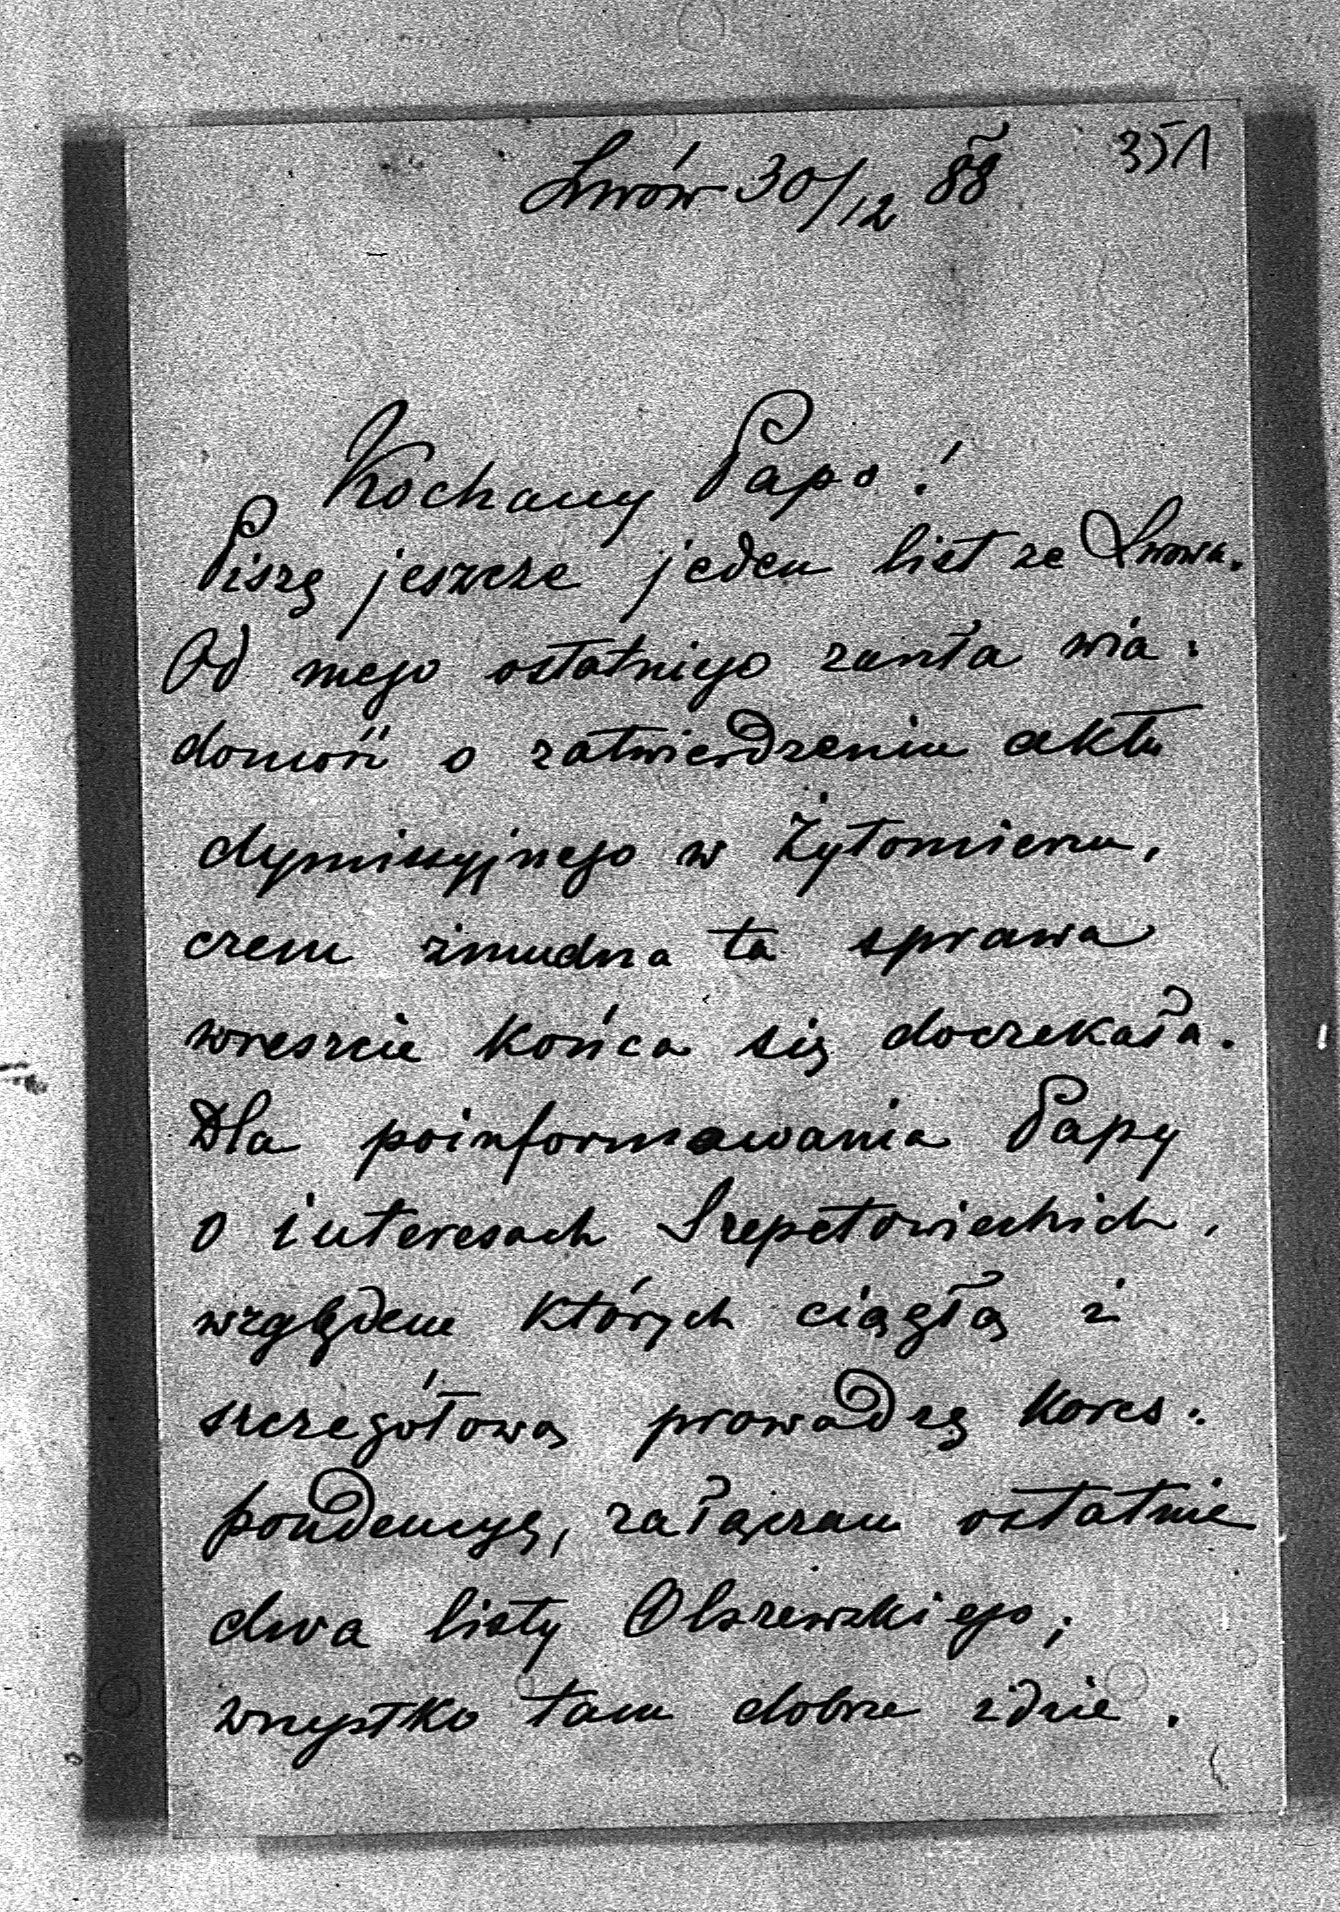 Lwów 30/12 88 351
Kochany Papo!
Piszę jeszcze jeden list ze Lwowa.
Od mego ostatniego zaszła wia:
domość o zatwierdzeniu aktu
dymissyjnego w Żytomierzu,
czem żmudna ta sprawa
wreszcie końca się doczekała.
Dla poinformowania Papy
o interesach Szepetowieckich,
względem których ciągłą i
szczegółową prowadzę kores:
pondencyę, załączam ostatnie
dwa listy Olszewskiego;
wszystko tam dobrze idzie.